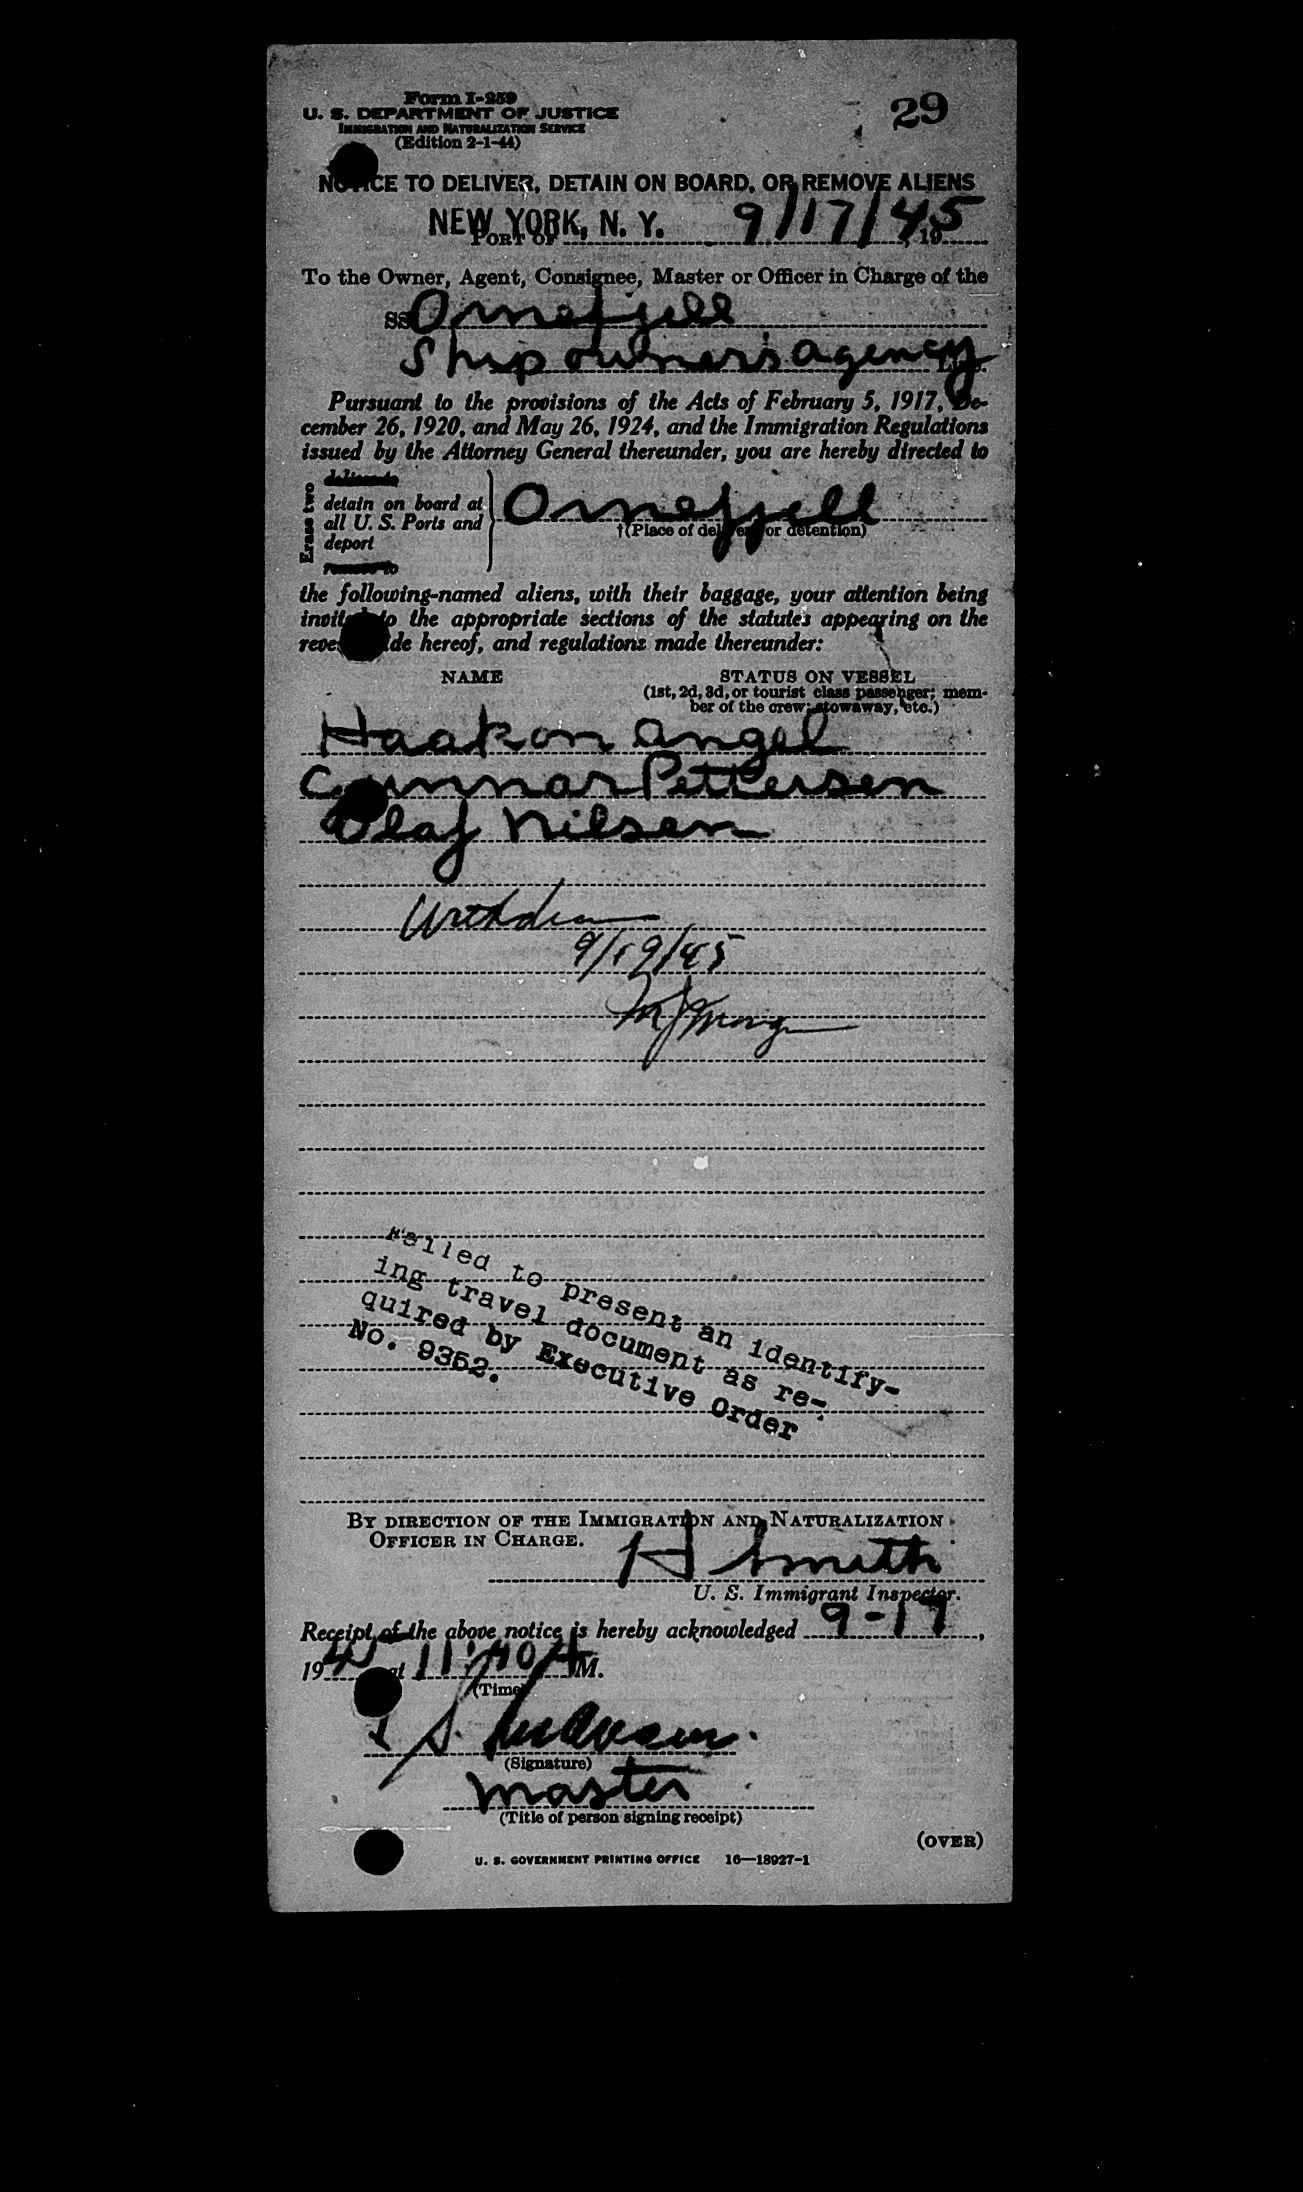 Form I-259
U. S. DEPARTMENT OF JUSTICE
IMMIGRATION AND NATURALIZATION SERVICE
(Edition 2-1-44)
29
NOTICE TO DELIVER, DETAIN ON BOARD, OR REMOVE ALIENS
NEW YORK, N. Y. 9/17/45
PORT OF , 19
To the Owner, Agent, Consignee, Master or Officer in Charge of the
SS Ornefjell
Shipowners agency
Pursuant to the provisions of the Acts of February 5, 1917, De-
cember 26, 1920, and May 26, 1924, and the Immigration Regulations
issued by the Attorney General thereunder, you are hereby directed to
Erase two
deliver to
detain on board at
all U. S. Ports and
deport
remove to
Ornefjell
†(Place of delivery or detention)
the following-named aliens, with their baggage, your attention being
invited to the appropriate sections of the statutes appearing on the
reverse side hereof, and regulations made thereunder:
NAME STATUS ON VESSEL
(1st, 2d, 3d, or tourist class passenger; mem-
ber of the crew; stowaway, etc.)
Haakon Angel
Gunnar Pettersen
Olaf Nilsen
Withdrawn
9/19/45
Failed to present an identify-
ing travel document as re-
quired by Executive Order
No. 9352.
BY DIRECTION OF THE IMMIGRATION AND NATURALIZATION
OFFICER IN CHARGE.
H Smith
U. S. Immigrant Inspector.
Receipt of the above notice is hereby acknowledged 9-17,
19 45 at 11:40 A M.
(Time)
(Signature)
Master
(Title of person signing receipt)
(OVER)
U. S. GOVERNMENT PRINTING OFFICE 16—18927-1